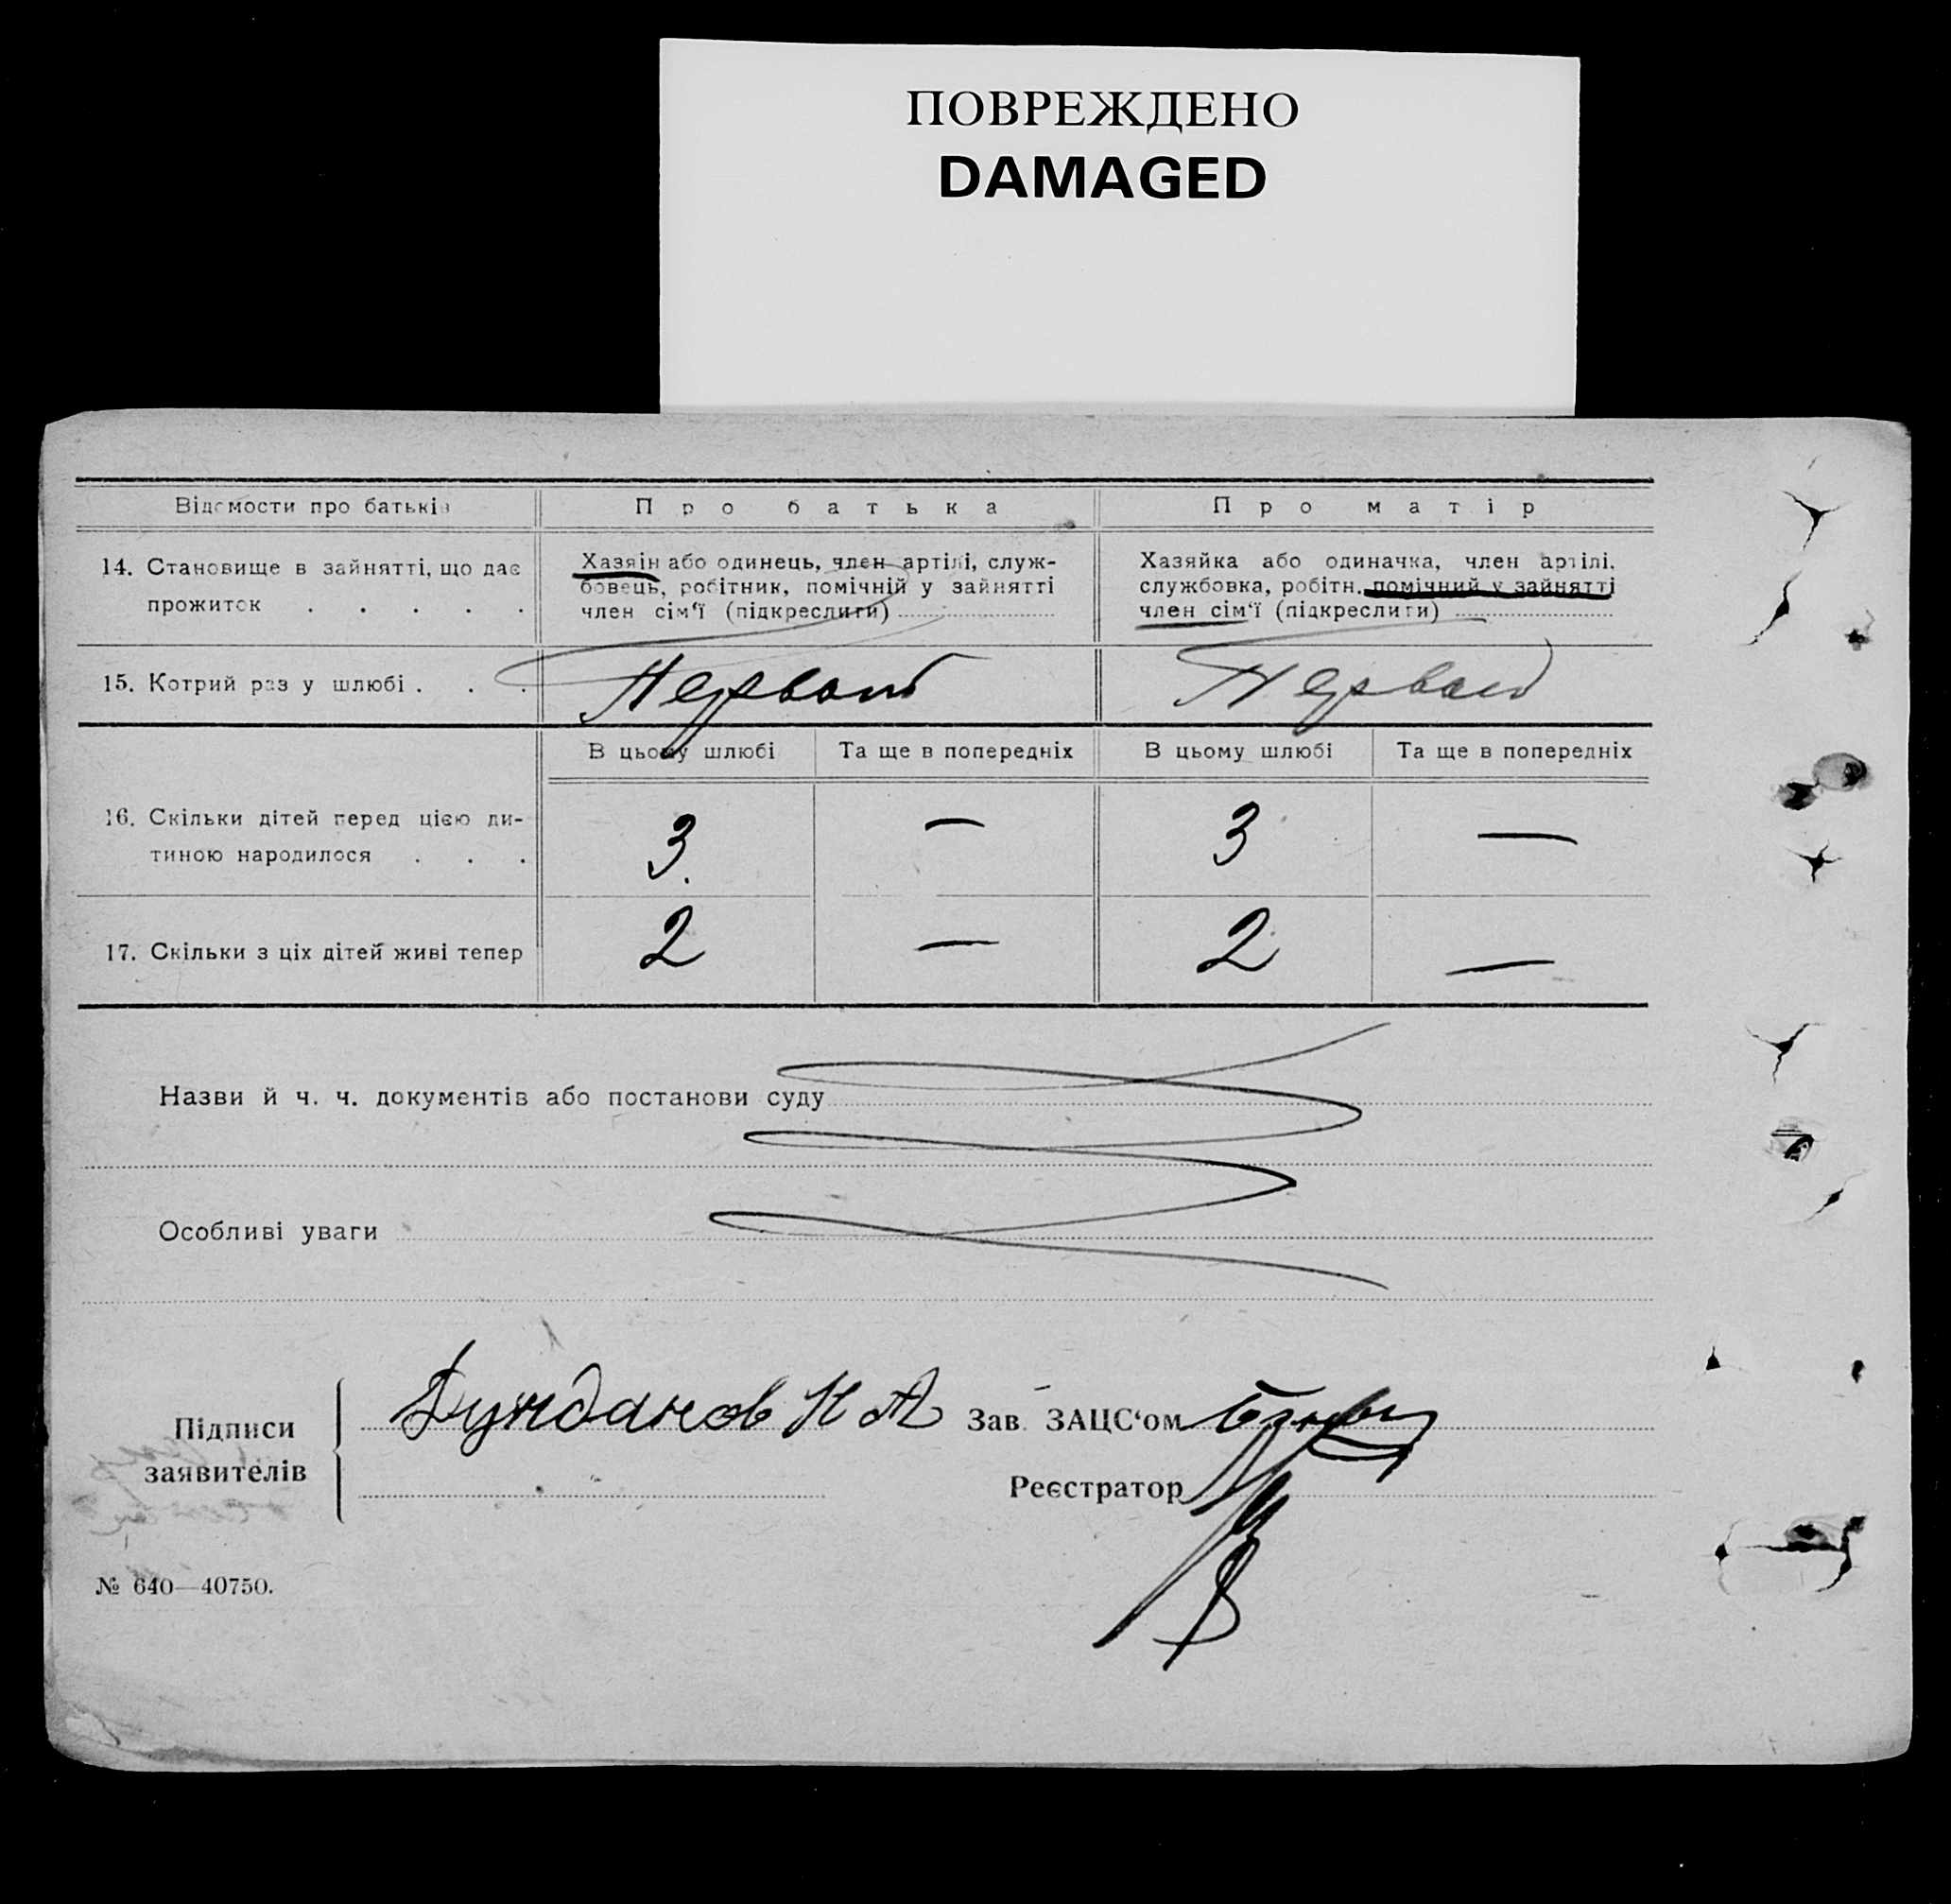 ПОВРЕЖДЕНО
DAMAGED
Відомости про батьків
Про батька
Про матір
14. Становище в зайнятті, що дає
прожиток . . . . .
Хазяїн або одинець, член артілі, служ-
бовець, робітник, помічній у зайнятті
член сім‘ї (підкреслити)
Хазяйка або одиначка, член артілі,
службовка, робітн. помічний у зайнятті
член сім‘ї (підкреслити)
15. Котрий раз у шлюбі . . .
Первый
Первый
В цьому шлюбі
Та ще в попередніх
В цьому шлюбі
Та ще в попередніх
16. Скільки дітей перед цією ди-
тиною народилося . . .
3
—
3
—
17. Скільки з ціх дітей живі тепер
2
—
2
—
Назви й ч. ч. документів або постанови суду
Особливі уваги
Підписи
заявителів
Зав. ЗАЦС‘ом
Реєстратор
№ 640—40750.